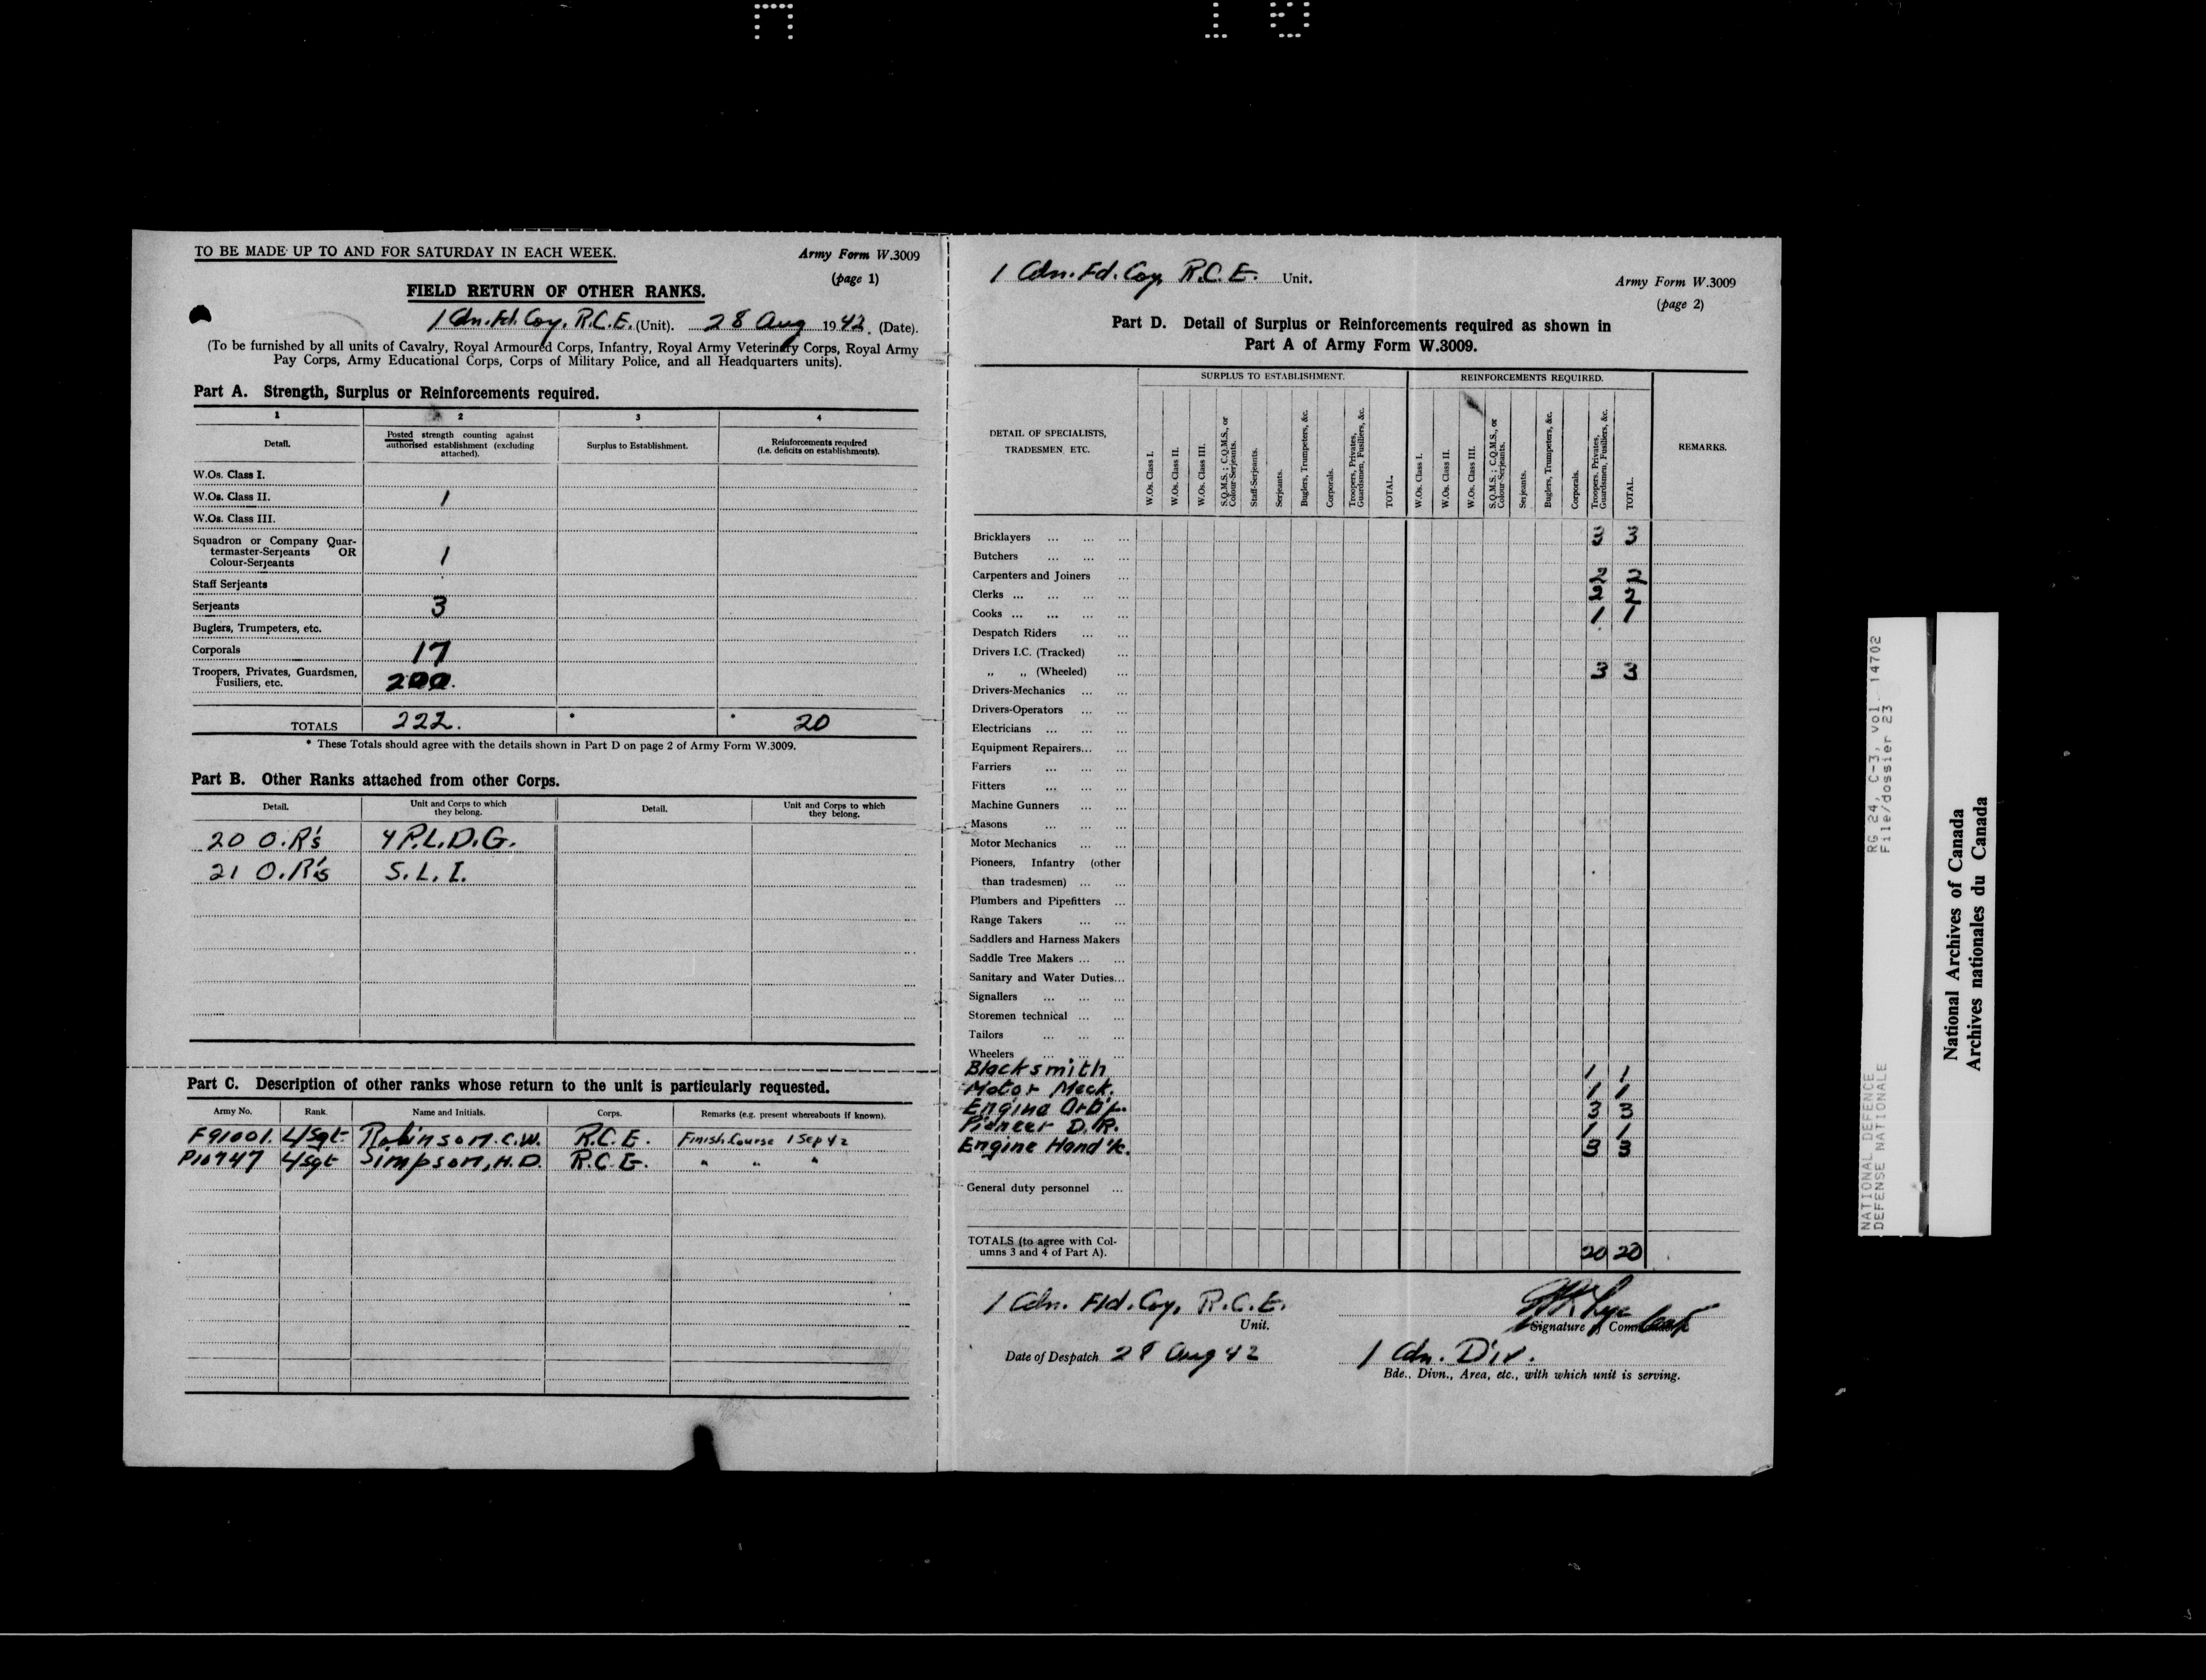 TO BE MADE UP TO AND FOR SATURDAY IN EACH WEEK.
Army Form W.3009
(page 1)
FIELD RETURN OF OTHER RANKS.
1 Cdn. Fd. Coy. R.C.E. (Unit). 28 Aug 1942. (Date).
(To be furnished by all units of Cavalry, Royal Armoured Corps, Infantry, Royal Army Veterinary Corps, Royal Army
Pay Corps, Army Educational Corps, Corps of Military Police, and all Headquarters units).
Part A. Strength, Surplus or Reinforcements required.
1 2 3 4
Detail. Posted strength counting against authorised establishment (excluding attached). Surplus to Establishment. Reinforcements required (i.e. deficits on establishments).
W.Os. Class I.
W.Os. Class II. 1
W.Os. Class III.
Squadron or Company Quar-
termaster-Serjeants OR
Colour-Serjeants 1
Staff Serjeants
Serjeants 3
Buglers, Trumpeters, etc.
Corporals 17
Troopers, Privates, Guardsmen,
Fusiliers, etc. 200.
TOTALS 222. * * 20
* These Totals should agree with the details shown in Part D on page 2 of Army Form W.3009.
Part B. Other Ranks attached from other Corps.
Detail. Unit and Corps to which they belong. Detail. Unit and Corps to which they belong.
20 O.R's 4 P.L.D.G.
21 O.R's S.L.I.
Part C. Description of other ranks whose return to the unit is particularly requested.
Army No. Rank. Name and Initials. Corps. Remarks (e.g. present whereabouts if known).
F91001. L/Sgt. Robinson. C.W. R.C.E. Finish Course 1 Sep 42
P10747 L/Sgt Simpson, H.D. R.C.E. " " "
1 Cdn. Fd. Coy. R.C.E. Unit.
Army Form W.3009
(page 2)
Part D. Detail of Surplus or Reinforcements required as shown in
Part A of Army Form W.3009.
DETAIL OF SPECIALISTS, TRADESMEN, ETC. SURPLUS TO ESTABLISHMENT. REINFORCEMENTS REQUIRED. REMARKS.
W.Os. Class I. W.Os. Class II. W.Os. Class III. S.Q.M.S.; C.Q.M.S., or Colour-Serjeants. Staff-Serjeants. Serjeants. Buglers, Trumpeters, &c. Corporals. Troopers, Privates, Guardsmen, Fusiliers, &c. TOTAL. W.Os. Class I. W.Os. Class II. W.Os. Class III. S.Q.M.S.; C.Q.M.S., or Colour-Serjeants. Serjeants. Buglers, Trumpeters, &c. Corporals. Troopers, Privates, Guardsmen, Fusiliers, &c. TOTAL.
Bricklayers ... ... ... 3 3
Butchers ... ... ...
Carpenters and Joiners ... 2 2
Clerks ... ... ... ... 2 2
Cooks ... ... ... ... 1 1
Despatch Riders ... ...
Drivers I.C. (Tracked) ...
" " (Wheeled) ... 3 3
Drivers-Mechanics ... ...
Drivers-Operators ... ...
Electricians ... ... ...
Equipment Repairers... ...
Farriers ... ... ...
Fitters ... ... ...
Machine Gunners ... ...
Masons ... ... ...
Motor Mechanics ... ...
Pioneers, Infantry (other
than tradesmen) ... ...
Plumbers and Pipefitters ...
Range Takers ... ...
Saddlers and Harness Makers
Saddle Tree Makers ... ...
Sanitary and Water Duties...
Signallers ... ... ...
Storemen technical ... ...
Tailors ... ... ...
Wheelers ... ... ...
Blacksmith 1 1
Motor Meck. 1 1
Engine Orb'r. 3 3
Pioneer D.R. 1 1
Engine Hand'k. 3 3
General duty personnel ...
TOTALS (to agree with Col-
umns 3 and 4 of Part A). 20 20
1 Cdn. Fld. Coy, R.C.E.
Unit.
Signature of Commander
Date of Despatch 28 Aug 42
1 Cdn. Div.
Bde., Divn., Area, etc., with which unit is serving.
NATIONAL DEFENCE RG 24, C-3, vol. 14702
DEFENSE NATIONALE File/dossier 23
National Archives of Canada
Archives nationales du Canada